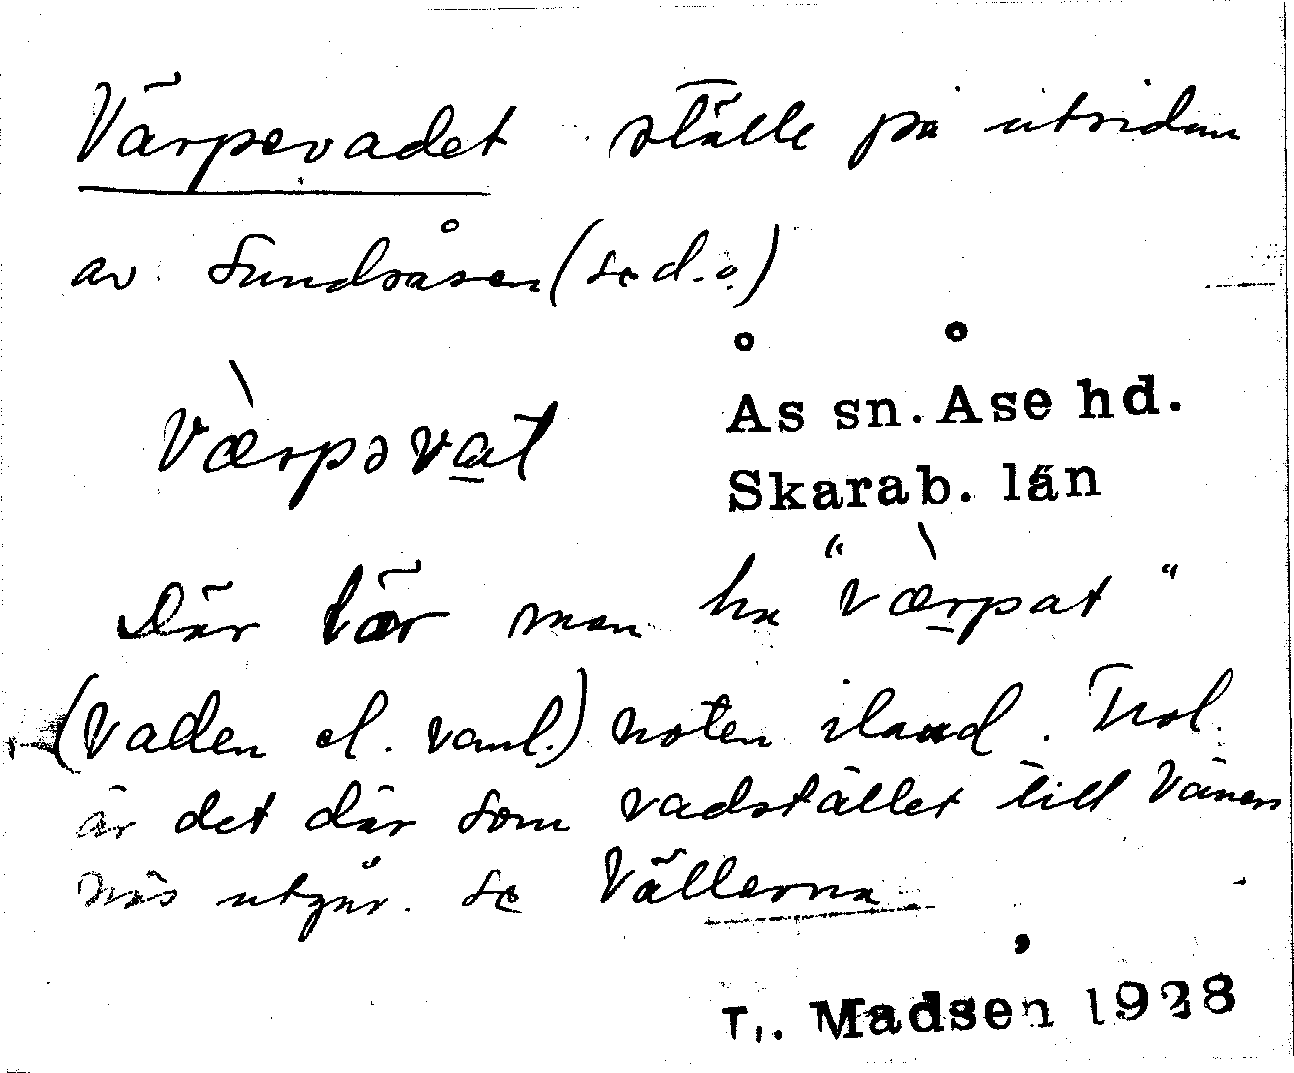 Värpevadet ställe på utsidan
av Sundsåsen (se d.o.)
Vœ̀rpəvat
Ås sn. Åse hd.
Skarab. län
Där lär man ha "vœ̀rpat"
(vaden el. vanl.) noten iland. Trol.
är det där som vadstället till Väners
näs utgår. se Vällerna
Madsen 1928